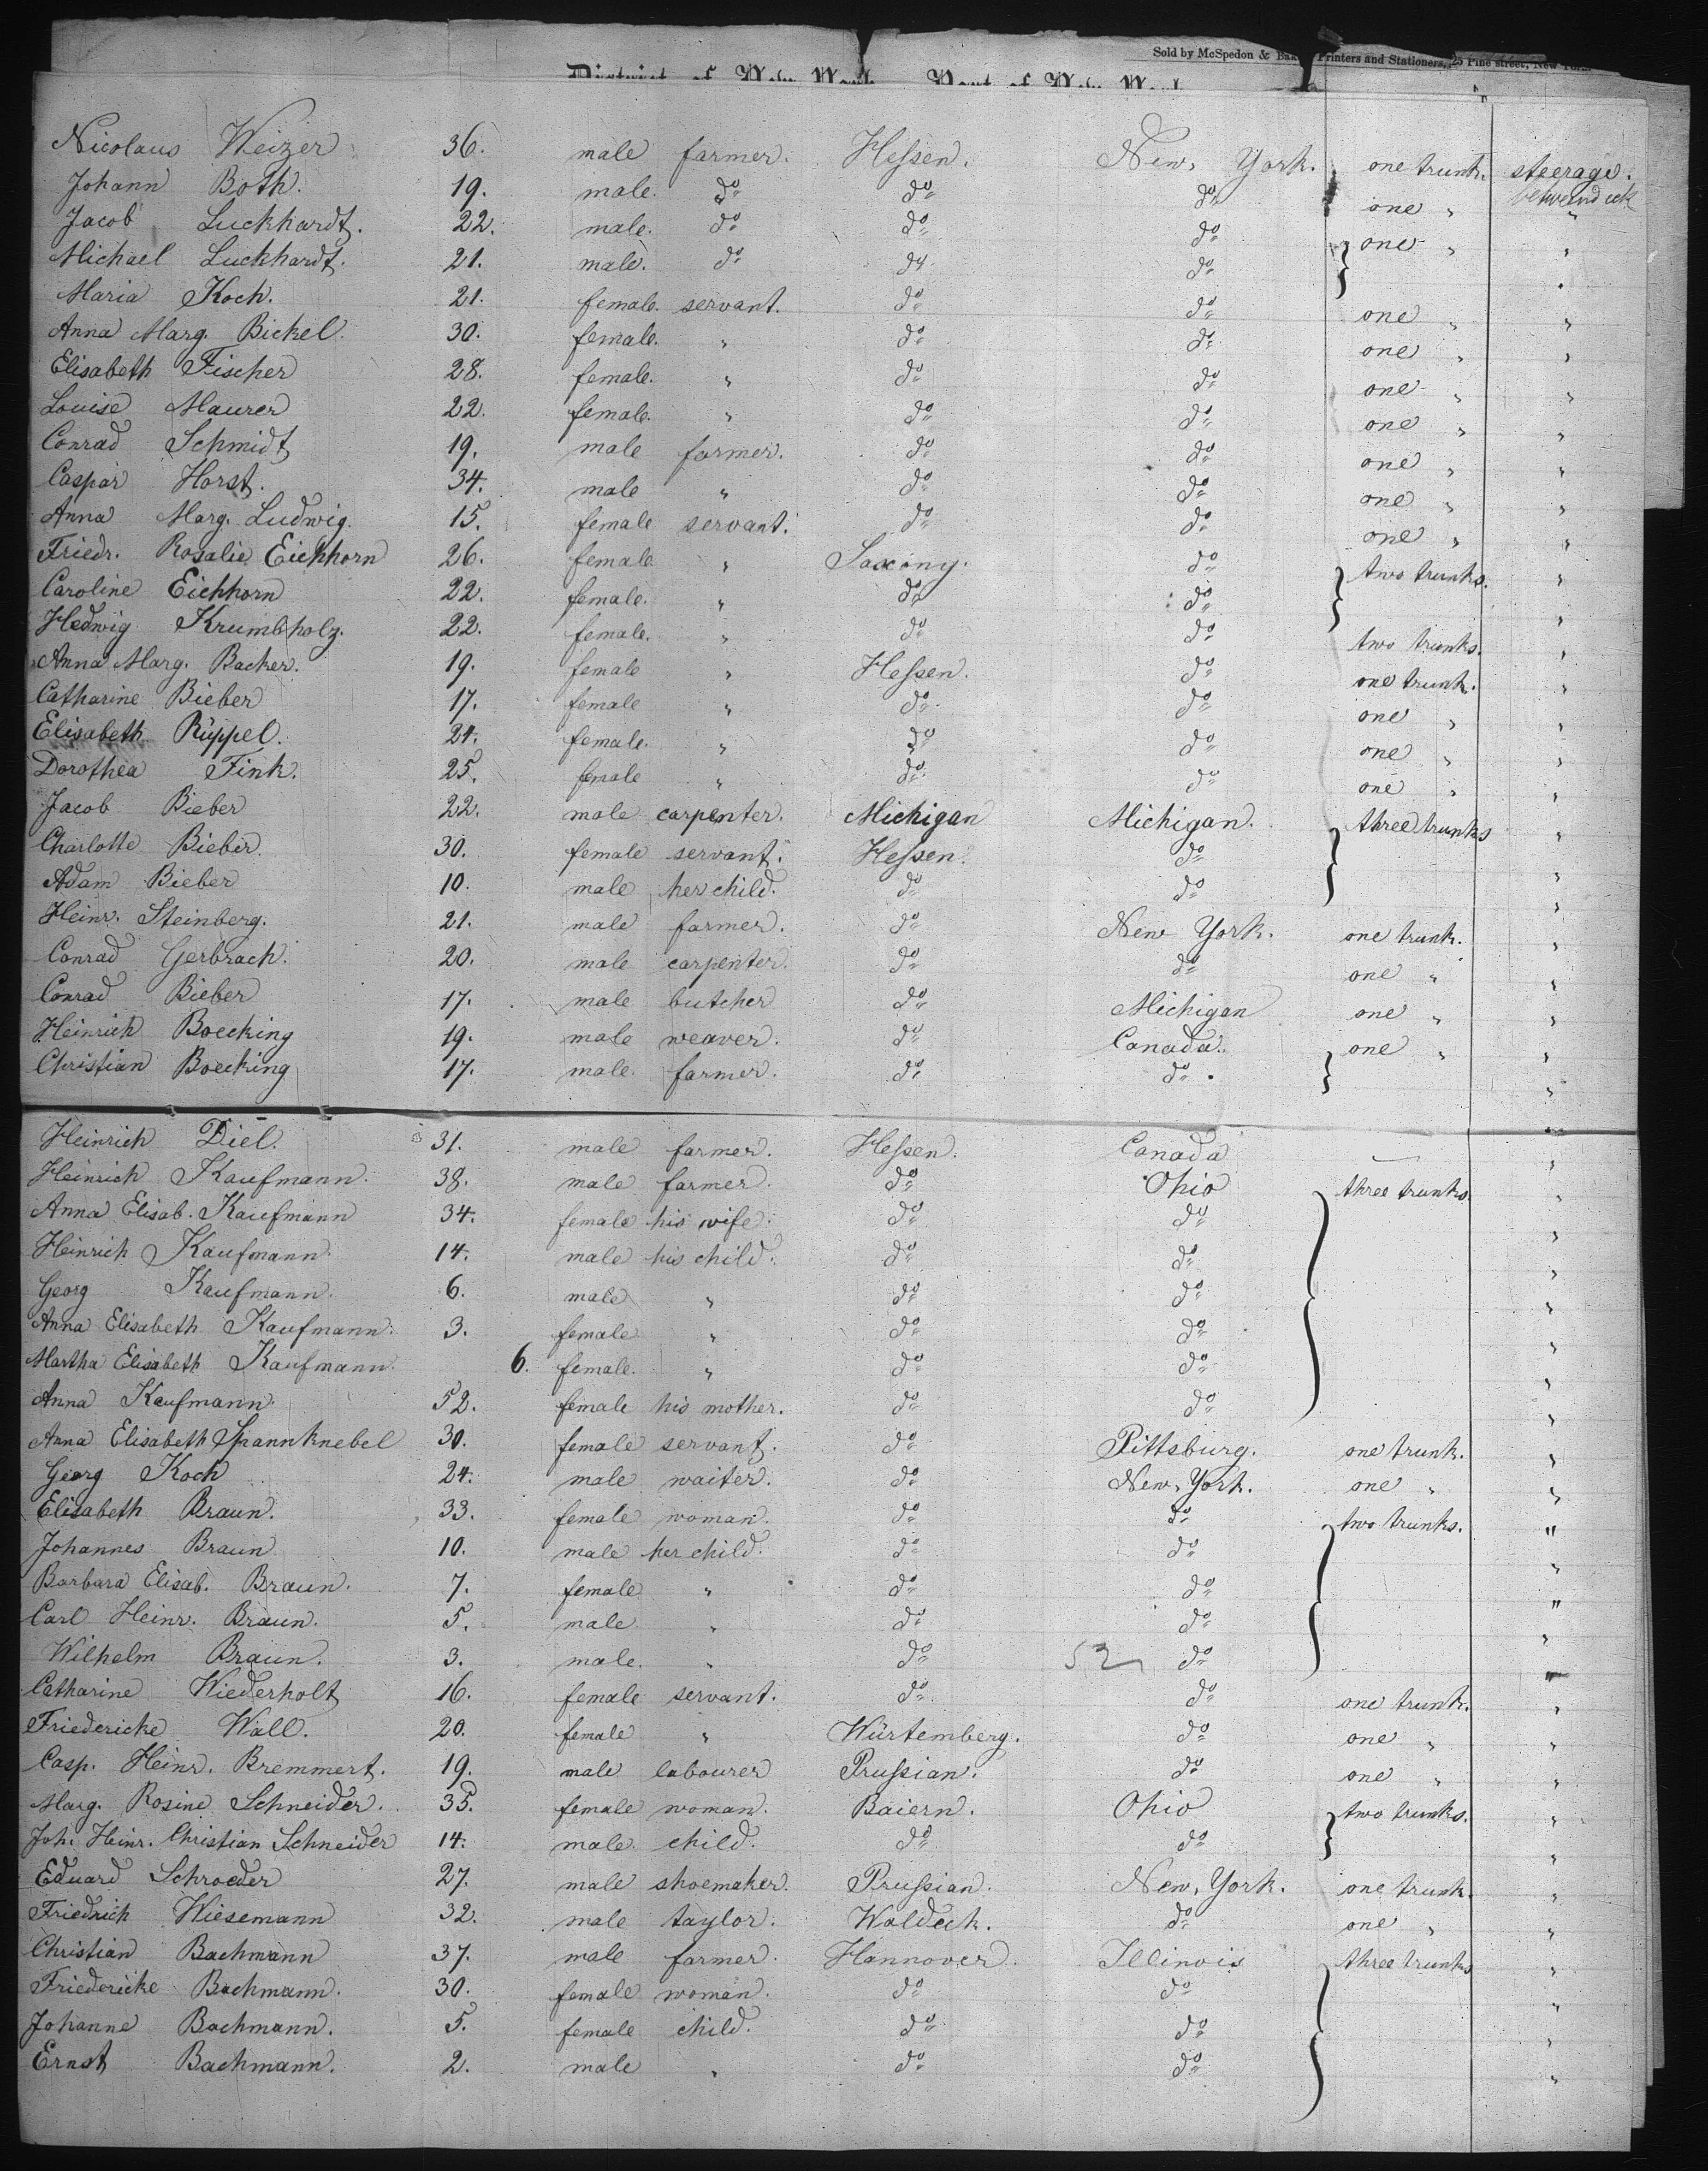 Sold by McSpedon & Printers and Stationers, 25 Pine street, New York.
District of New York Port of New York
Nicolaus Weizer 36. male farmer. Heſsen. New, York. one trunk. steerage.
betweendeck
Johann Both. 19. male. do do do one " "
Jacob Luckhardt. 22. male. do do do } one " "
Michael Luckhardt. 21. male. do do do "
Maria Koch. 21. female. servant. do do one " "
Anna Marg. Bickel. 30. female. " do do one " "
Elisabeth Fischer 28. female. " do do one " "
Louise Maurer 22. female. " do do one " "
Conrad Schmidt 19. male farmer. do do one " "
Caspar Horst. 34. male " do do one " "
Anna Marg. Ludwig. 15. female servant. do do one " "
Friedr. Rosalie Eichhorn 26. female " Saxony. do } two trunks. "
Caroline Eichhorn 22. female. " do do "
Hedwig Krumbholz. 22. female. " do do two trunks. "
Anna Marg. Backer. 19. female " Heſsen. do one trunk. "
Catharine Bieber 17. female " do do one " "
Elisabeth Rüppel. 24. female. " do do one " "
Dorothea Fink. 25. female " do do one " "
Jacob Bieber 22. male carpenter. Michigan Michigan. } three trunks "
Charlotte Bieber. 30. female servant. Heſsen. do "
Adam Bieber 10. male her child. do do "
Heinr. Steinberg. 21. male farmer. do New York. one trunk. "
Conrad Gerbrach. 20. male carpenter. do do one " "
Conrad Bieber 17. male butcher do Michigan one " "
Heinrich Boecking 19. male weaver. do Canada. } one " "
Christian Boecking 17. male. farmer. do do "
Heinrich Diel. 31. male farmer. Heſsen. Canada — "
Heinrich Kaufmann. 38. male farmer. do Ohio } three trunks. "
Anna Elisab. Kaufmann 34. female his wife. do do "
Heinrich Kaufmann. 14. male his child. do do "
Georg Kaufmann. 6. male " do do "
Anna Elisabeth Kaufmann. 3. female " do do "
Martha Elisabeth Kaufmann. 6. female. " do do "
Anna Kaufmann. 52. female his mother. do do "
Anna Elisabeth Spannknebel 30. female servant. do Pittsburg. one trunk. "
Georg Koch 24. male waiter. do New, York. one " "
Elisabeth Braun. 33. female woman. do do } two trunks. "
Johannes Braun 10. male her child. do do "
Barbara Elisab. Braun. 7. female " do do "
Carl Heinr. Braun. 5. male " do do "
Wilhelm Braun. 3. male. " do 52 do "
Catharine Wiederholt 16. female servant. do do one trunk. "
Friedericke Wall. 20. female " Würtemberg. do one " "
Casp. Heinr. Bremmert. 19. male labourer Pruſsian. do one " "
Marg. Rosine Schneider. 35. female woman. Baiern. Ohio } two trunks. "
Joh. Heinr. Christian Schneider 14. male. child. do do "
Eduard Schroeder 27. male shoemaker. Pruſsian. New, York. one trunk. "
Friedrich Wiesemann 32. male taylor. Waldeck. do one " "
Christian Bachmann 37. male farmer. Hannover. Illinois } three trunks "
Friedericke Bachmann. 30. female woman. do do "
Johanne Bachmann. 5. female child. do do "
Ernst Bachmann. 2. male " do do "